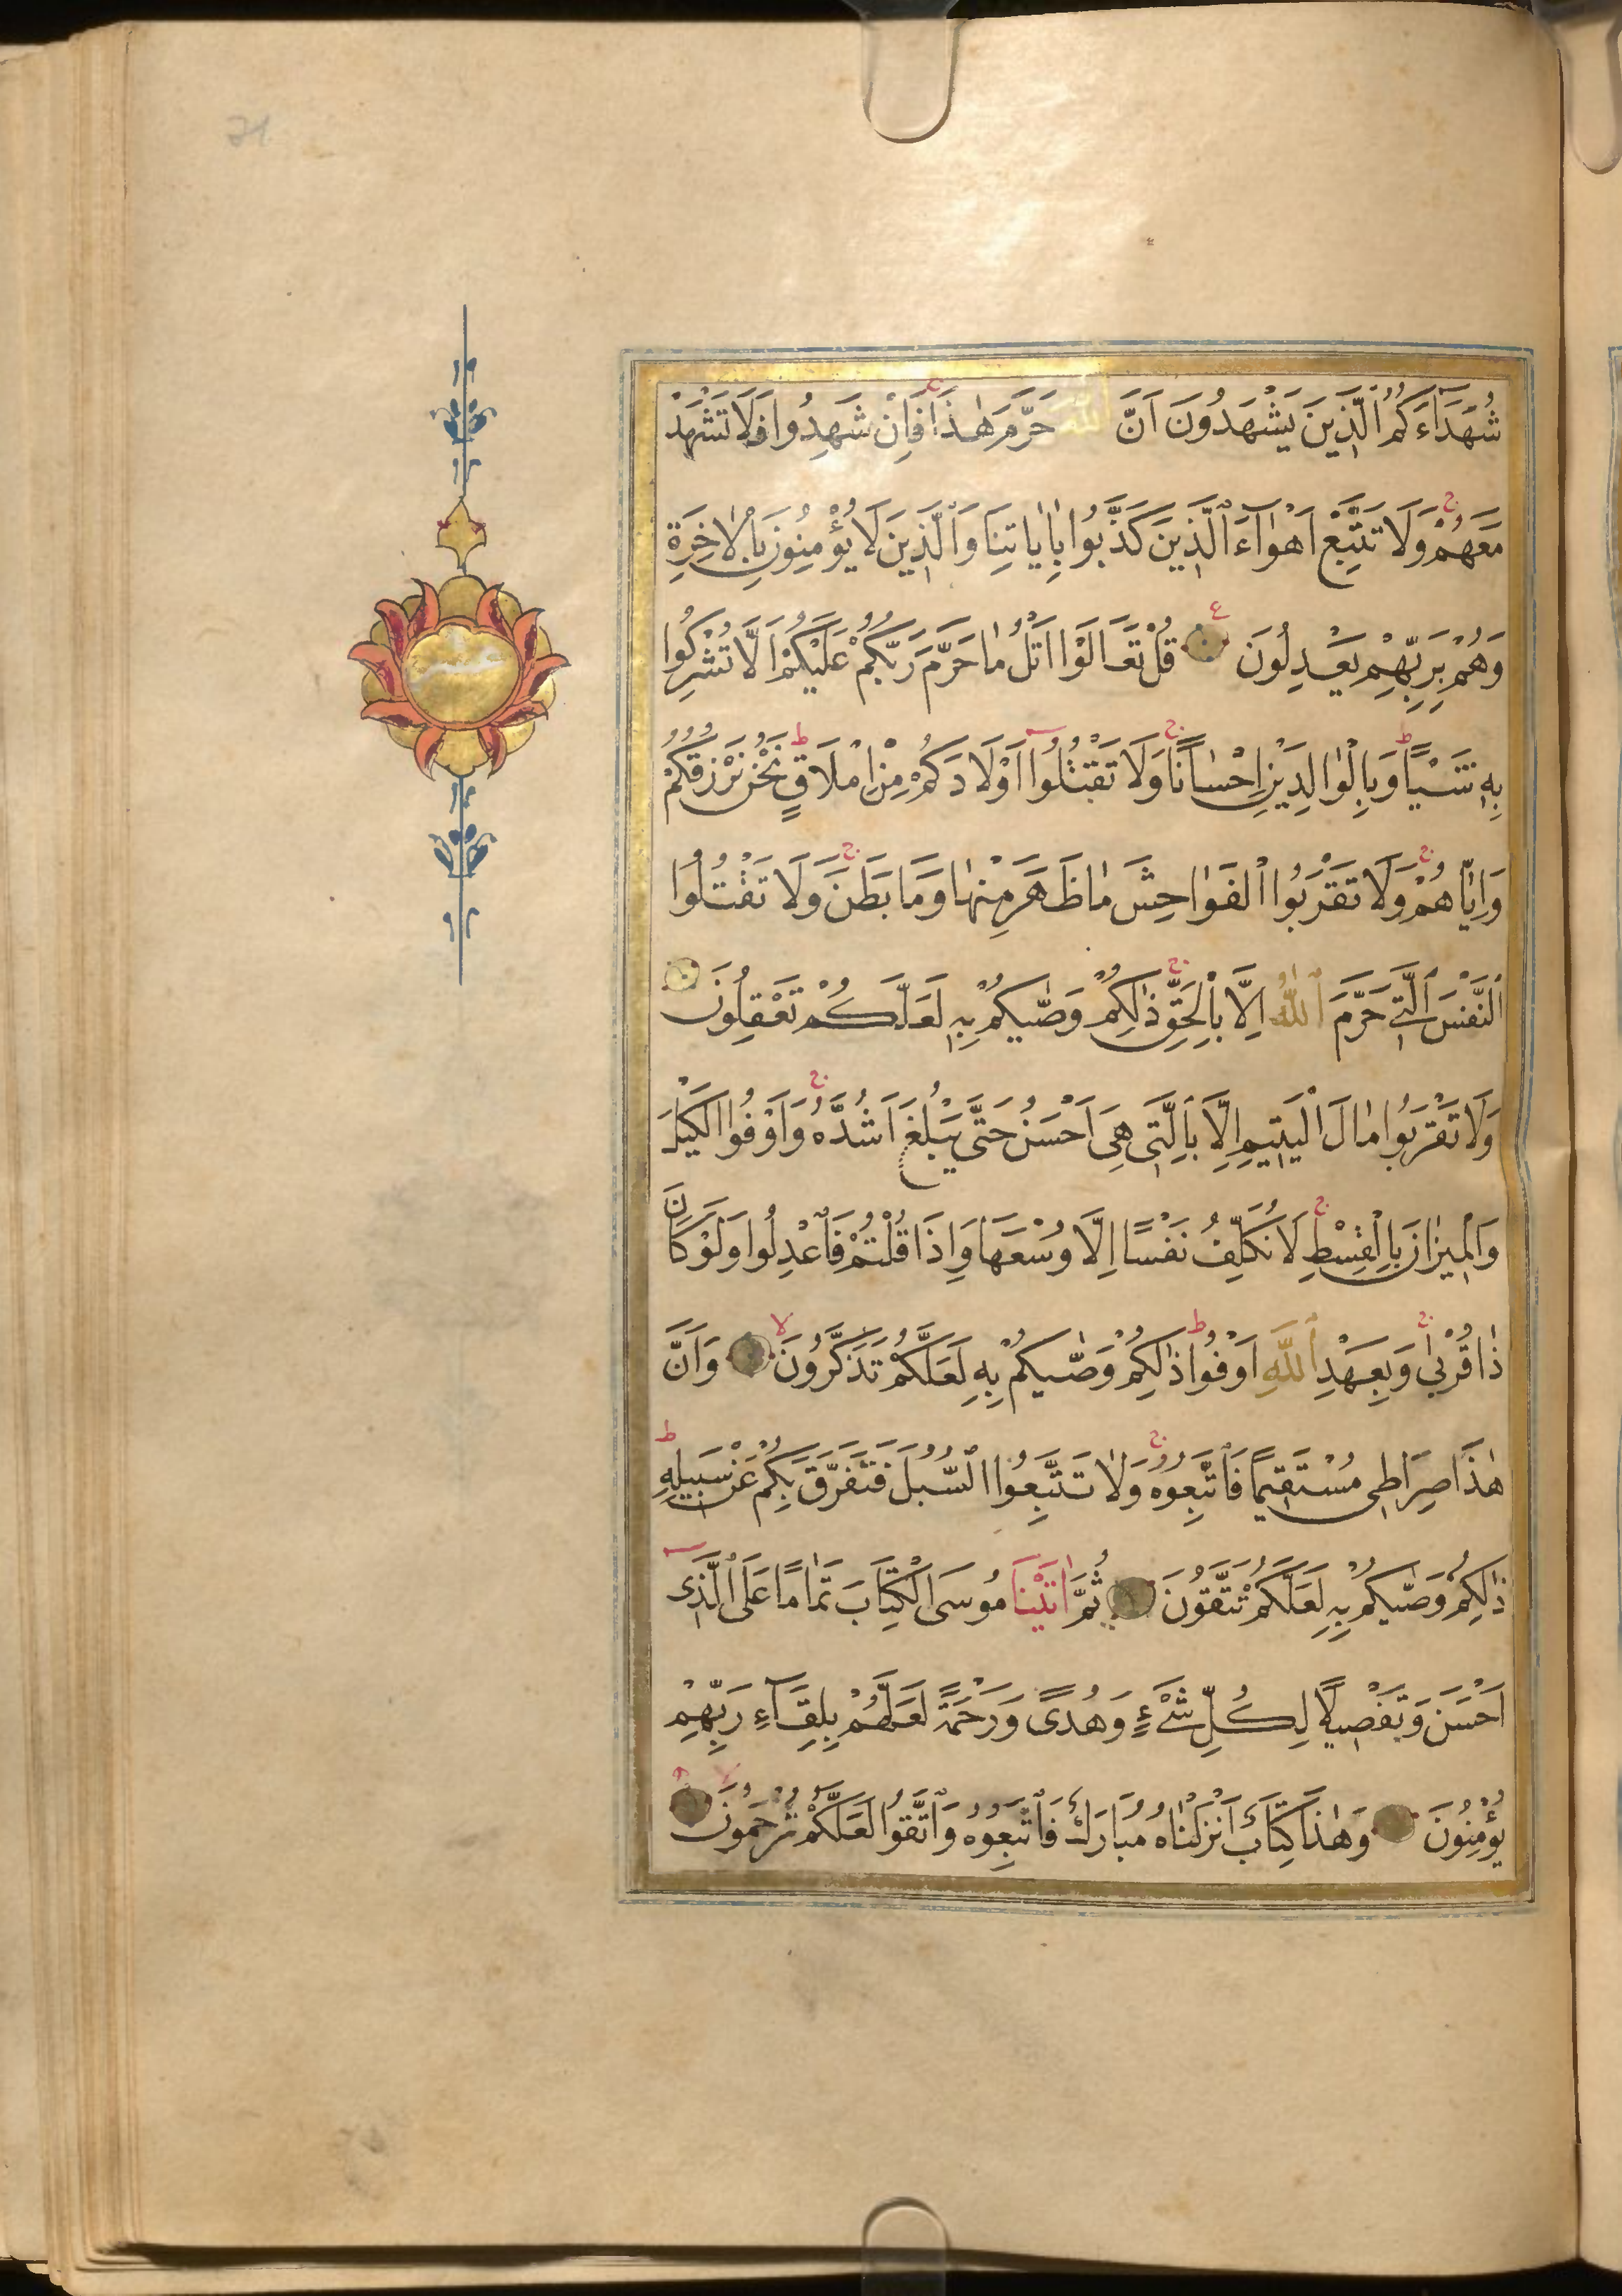 شُهَدَآءَكُمُ الَّذِينَ يَشْهَدُونَ اَنَّ اللّٰهَ حَرَّمَ هٰذَا فَاِنْ شَهِدُوا فَلَا تَشْهَدْ
مَعَهُمْ وَلَا تَتَّبِعْ اَهْوَآءَ الَّذِينَ كَذَّبُوا بِاٰيَاتِنَا وَالَّذِينَ لَا يُؤْمِنُونَ بِالْاٰخِرَةِ
وَهُمْ بِرَبِّهِمْ يَعْدِلُونَ قُلْ تَعَالَوْا اَتْلُ مَا حَرَّمَ رَبُّكُمْ عَلَيْكُمْ اَلَّا تُشْرِكُوا
بِهِ شَيْـًٔا وَبِالْوَالِدَيْنِ اِحْسَانًا وَلَا تَقْتُلُوا اَوْلَادَكُمْ مِنْ اِمْلَاقٍ نَحْنُ نَرْزُقُكُمْ
وَاِيَّاهُمْ وَلَا تَقْرَبُوا الْفَوَاحِشَ مَا ظَهَرَ مِنْهَا وَمَا بَطَنَ وَلَا تَقْتُلُوا
النَّفْسَ الَّتِي حَرَّمَ اللّٰهُ اِلَّا بِالْحَقِّ ذٰلِكُمْ وَصّٰيكُمْ بِهِ لَعَلَّكُمْ تَعْقِلُونَ
وَلَا تَقْرَبُوا مَالَ الْيَتِيمِ اِلَّا بِالَّتِى هِىَ اَحْسَنُ حَتَّى يَبْلُغَ اَشُدَّهُ وَاَوْفُوا الْكَيْلَ
وَالْمِيزَانَ بِالْقِسْطِ لَا نُكَلِّفُ نَفْسًا اِلَّا وُسْعَهَا وَاِذَا قُلْتُمْ فَاعْدِلُوا وَلَوْ كَانَ
ذَا قُرْبٰى وَبِعَهْدِ اللّٰهِ اَوْفُوا ذٰلِكُمْ وَصّٰيكُمْ بِهِ لَعَلَّكُمْ تَذَكَّرُونَ وَاَنَّ
هٰذَا صِرَاطِى مُسْتَقِيمًا فَاتَّبِعُوهُ وَلَا تَتَّبِعُوا السُّبُلَ فَتَفَرَّقَ بِكُمْ عَنْ سَبِيلِهِ
ذٰلِكُمْ وَصّٰيكُمْ بِهِ لَعَلَّكُمْ تَتَّقُونَ ثُمَّ اٰتَيْنَا مُوسَى الْكِتَابَ تَمَامًا عَلَى الَّذِى
اَحْسَنَ وَتَفْصِيلًا لِكُلِّ شَىْءٍ وَهُدًى وَرَحْمَةً لَعَلَّهُمْ بِلِقَآءِ رَبِّهِمْ
يُؤْمِنُونَ وَهٰذَا كِتَابٌ اَنْزَلْنَاهُ مُبَارَكٌ فَاتَّبِعُوهُ وَاتَّقُوا لَعَلَّكُمْ تُرْحَمُونَ